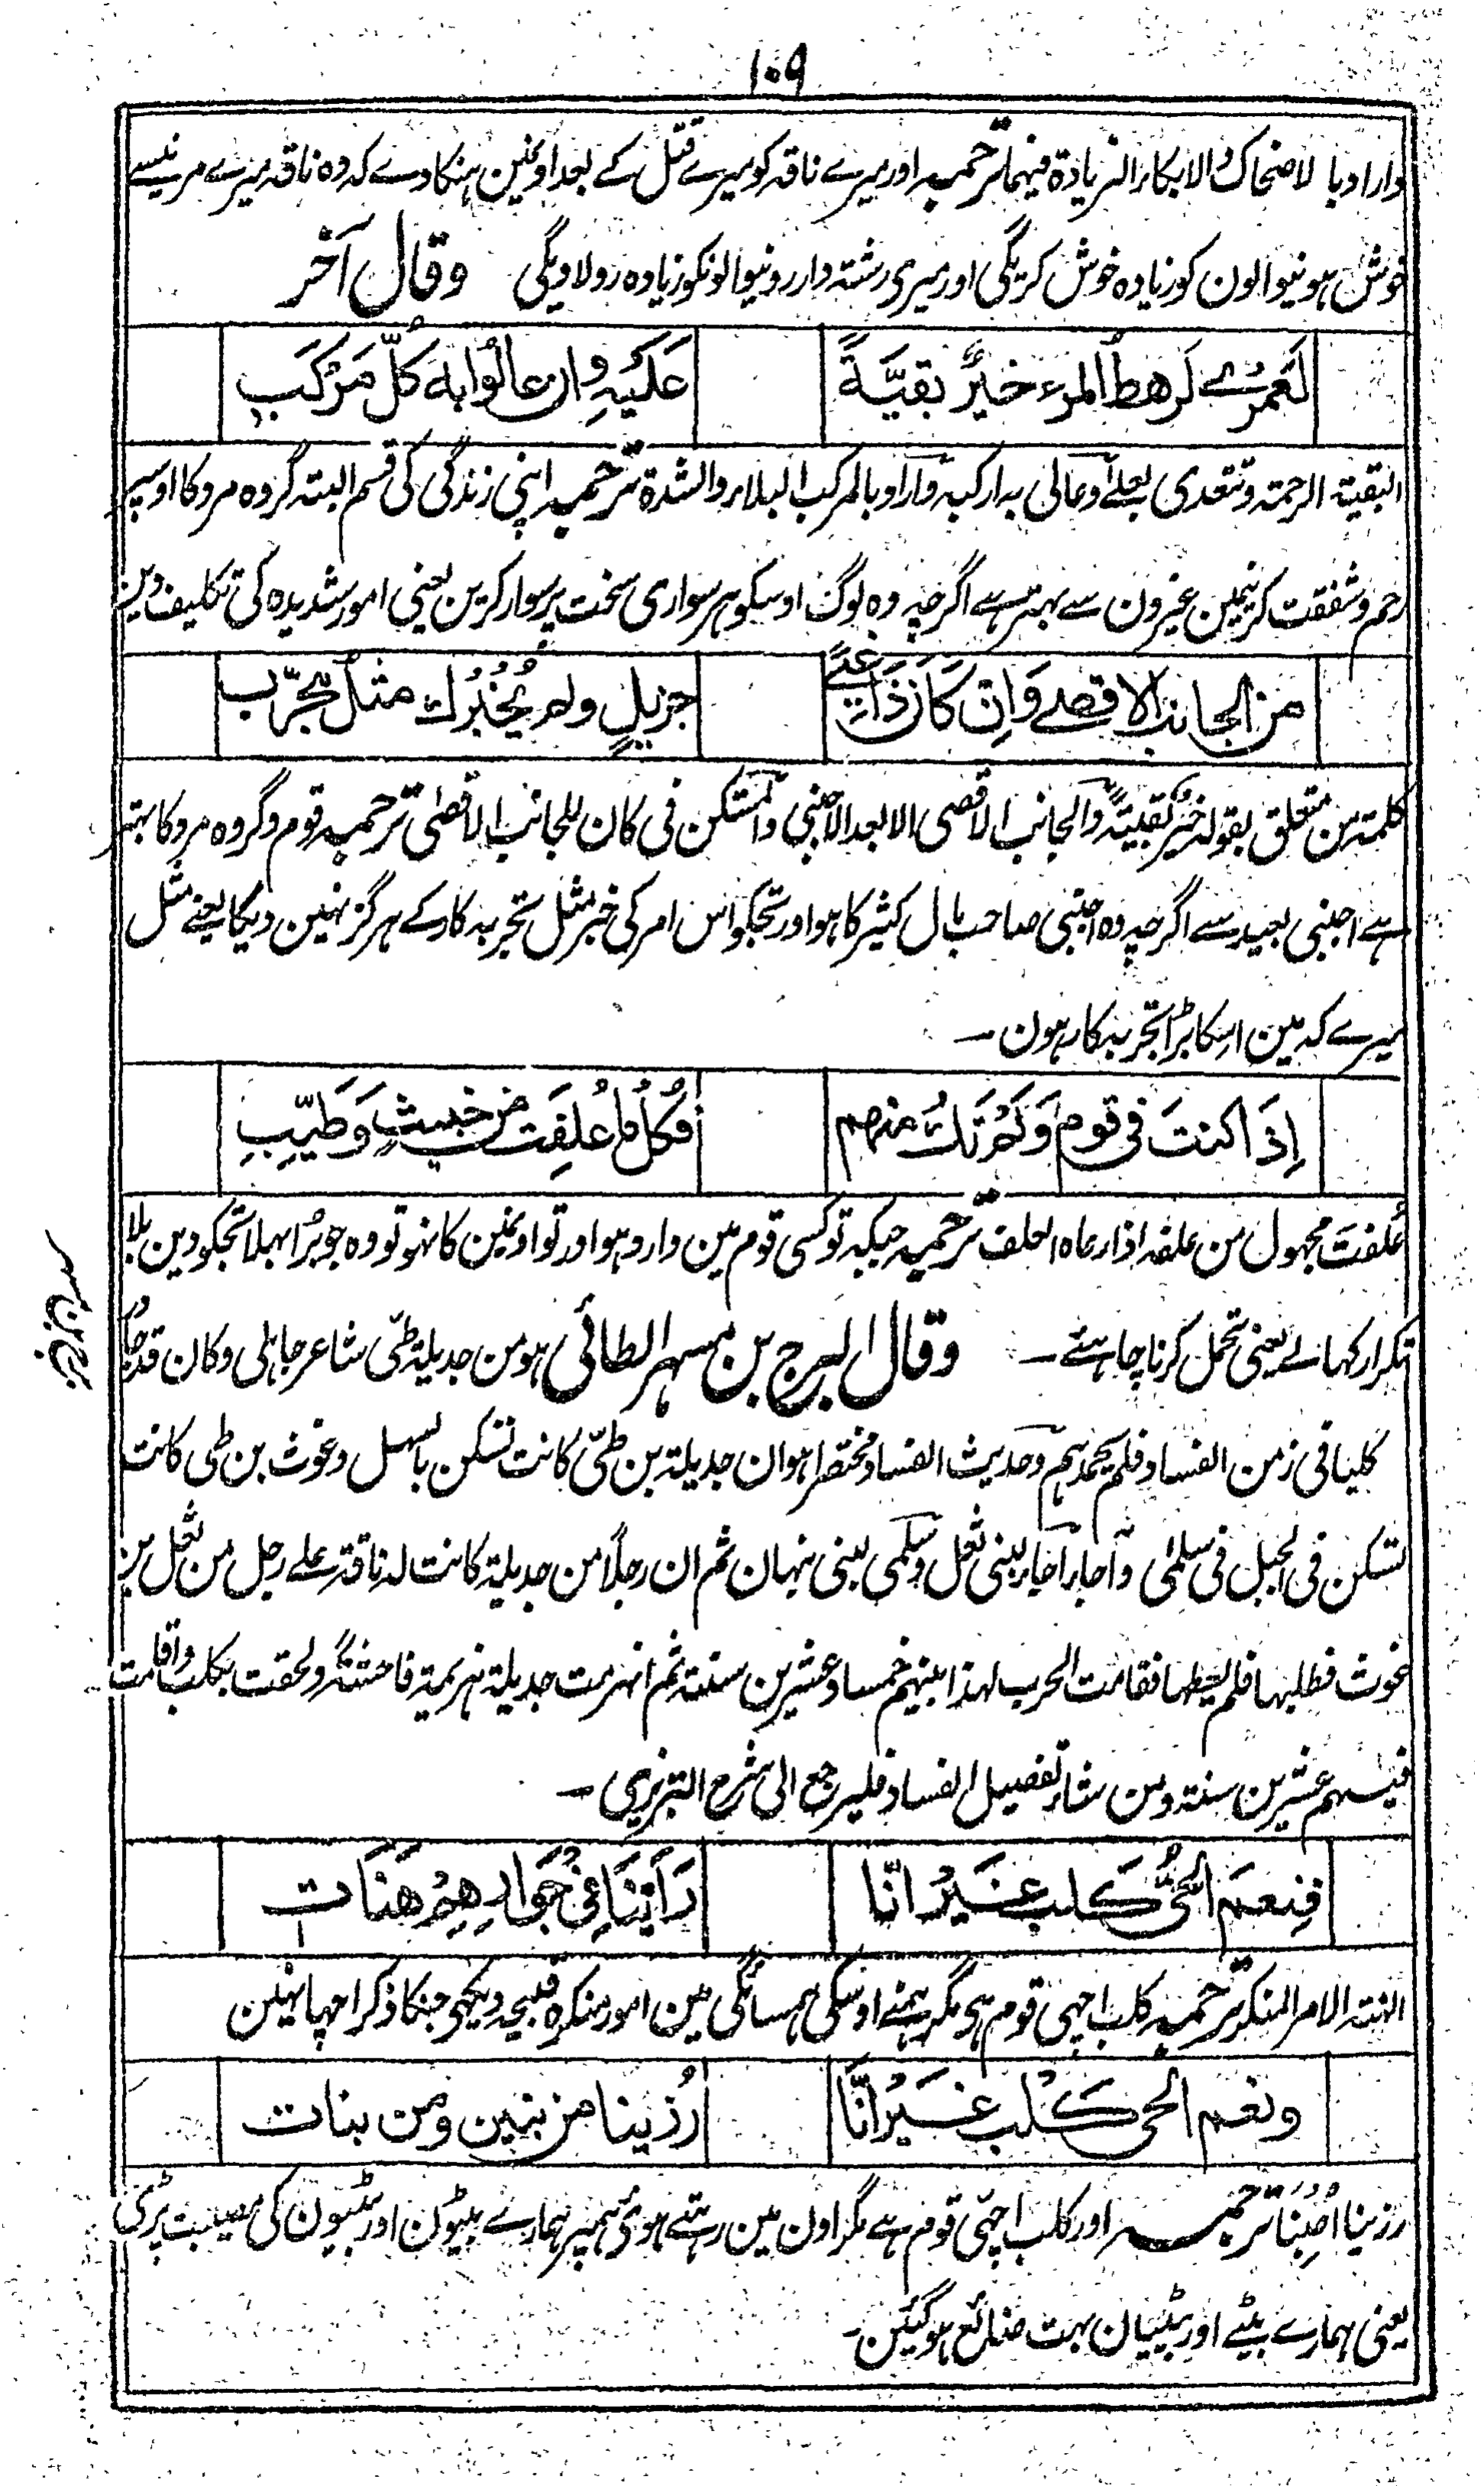 ۱۰۹
واراد بالاضحاک والابکاء الزیادة فیهما ترجمہ اور میرے ناقہ کو میرے قتل کے بعد اونمین ہنکا دے کہ وہ ناقہ میرے مرنیسے
خوش ہونیوالون کو زیادہ خوش کریگی اور میری رشتہ دار رونیوالونکو زیادہ رولاویگی وقال آخر
لَعَمْرِے لَرَهطُ المرء خیرٌ بقیَّةً عَلَیْہِ وان عالَوْا بہ کُلَّ مَرْکَبِ
البقیة الرحمة وتتعدی بعلے وعالی بہ ارکبہ واراد بالمرکب البلاء والشدة ترجمہ اپنی زندگی کی قسم البتہ گروہ مرد کا اوسپر
رحم و شفقت کرنیمین غیرون سے بہتر ہے اگرچہ وہ لوگ اوسکو ہر سواری سخت پر سوار کرین یعنی امور شدیدہ کی تکلیف دین
من الجانب الاقصے وَاِن کَانَ ذَا غِنًے جزیلٍ ولم یُخْبِرْکَ مثلُ مُجَرِّب
کلمة من متعلق بقولہ خیرٌ بقیةً والجانب الاقصی الابعد الاجنبی والمستکن فی کان للجانب الاقصٰی ترجمہ قوم و گروہ مرد کا بہتر
ہے اجنبی بعید سے اگرچہ وہ اجنبی صاحب مال کثیر کا ہو اور تجکو اس امر کی خبر مثل تجربہ کار کے ہرگز نہین دیگا یعنے مثل
میرے کہ مین اسکا بڑا تجربہ کار ہون ـ
اِذَا کنتَ فی قومٍ وَلَمْ تَکُ منهم فکُلْ ما عُلِفْتَ من خبیثٍ وَطَیِّبِ
عُلفتَ مجہول من علفہ اذا رعاہ العلف ترجمہ جبکہ تو کسی قوم مین وارد ہو اور تو اونمین کا نہو تو وہ جو بُرا بہلا تجکو دین بلا
تکرار کہالے یعنی تحمل کرنا چاہئے ـ وقال البرج بن مسهر الطائی هو من جدیلة طیّ شاعر جاہلی وکان قد جاور
کلبا فی زمن الفساد فلم یحمدہم وحدیث الفساد مختصرا هو ان جدیلة بن طیّ کانت تسکن بالسهل وغوث بن طی کانت
تسکن فی الجبل فی سلمٰی وآجاء اجاء لبنی ثعل وسلمی لبنی نبهان ثم ان رجلًا من جدیلة کانت لہ ناقة علے رجل من ثعل بن
غوث فطلبها فلم یعطها فقامت الحرب لهذا بینهم خمسا وعشرین سنة ثم انهزمت جدیلة هزیمة فاحشة ولحقت بکلب واقامت
فیہم عشرین سنة ومن شاء تفصیل الفساد فلیرجع الی شرح التبریزی ـ
فنِعمَ الحیُّ کلب غَیْرَ انّا رَاَیْنَا فِی جَوَارِهِمْ هَنَات
الهنة الامر المنکر ترجمہ کلب اچہی قوم ہی مگر ہمنے اوسکی ہمسائگی مین امور منکرہ قبیحہ دیکہی جنکا ذکر اچہا نہین
ونعم الحی کَلب غَیْرَ اَنّا رُزینا من بنین ومن بنات
رزینا اُصِبْنَا ترجمہ اور کلب اچہی قوم ہے مگر اون مین رہتے ہوئی ہمپر ہمارے بیٹون اور بیٹیون کی مصیبت پڑی
یعنی ہمارے بیٹے اور بیٹیان بہت ضائع ہوگئین ـ